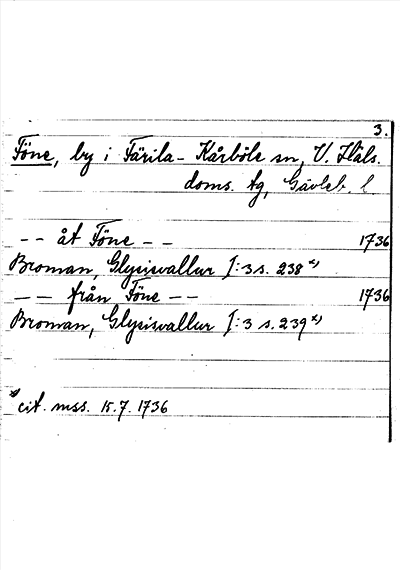 3.
Föne, by i Färila-Kårböle sn, V. Häls.
doms. tg, Gävleb. l
-- åt Föne -- 1736
Broman, Glysisvallur I:3 s. 238 x)
-- från Föne -- 1736
Broman, Glysisvallur I:3 s. 239 x)
x) cit. mss. 15.7.1736